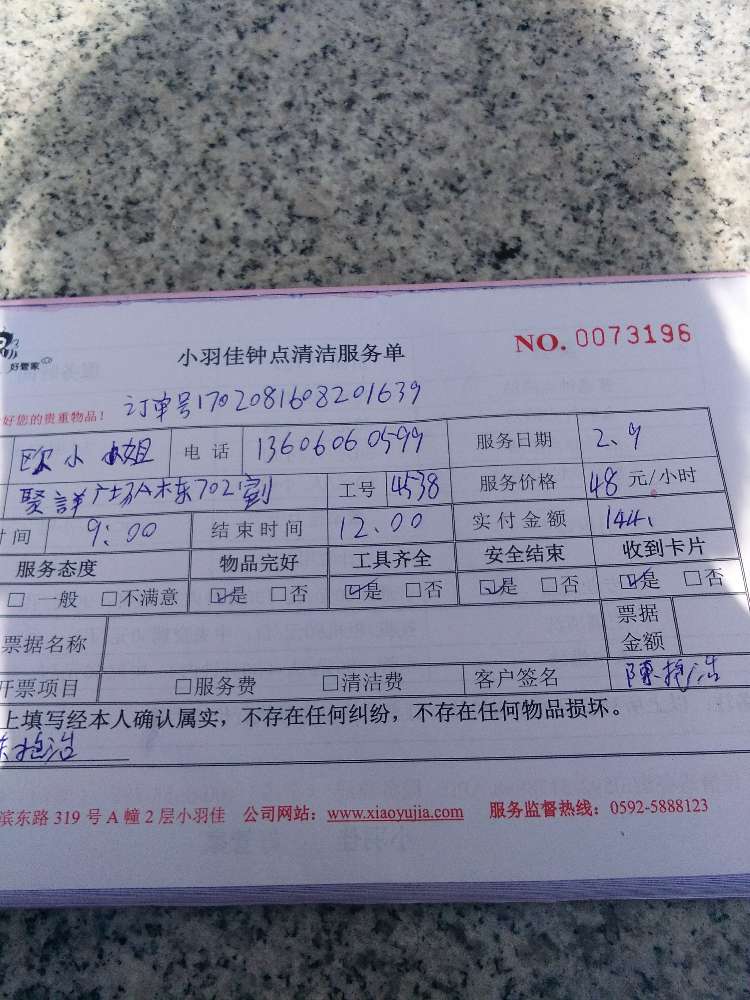 好管家
小羽佳钟点清洁服务单 NO. 0073196
好您的贵重物品！ 订单号1702081608201639
欧小姐 电话 13606060599 服务日期 2.9
702室 工号 4538 服务价格 48 元/小时
时间 9:00 结束时间 12.00 实付金额 144
服务态度 物品完好 工具齐全 安全结束 收到卡片
□ 一般 □不满意 ☑是 □否 ☑是 □否 ☑是 □否 ☑是 □否
票据名称 票据金额
开票项目 □服务费 □清洁费 客户签名
上填写经本人确认属实，不存在任何纠纷，不存在任何物品损坏。
滨东路 319 号 A 幢 2 层小羽佳 公司网站：www.xiaoyujia.com 服务监督热线：0592-5888123